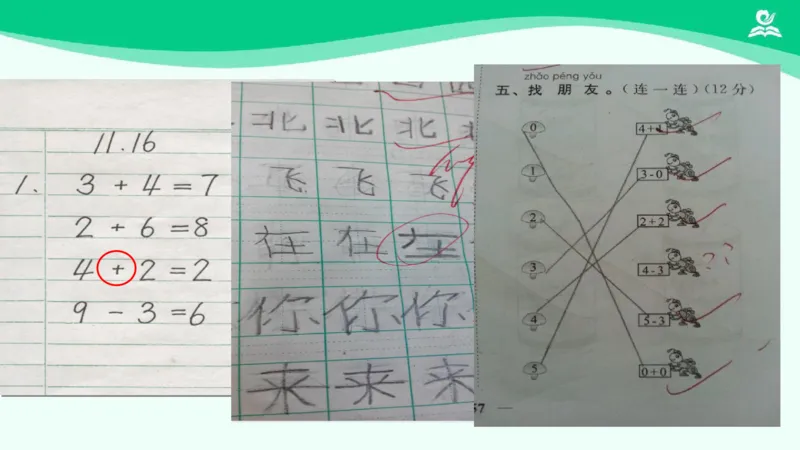 11.16
1. 3 + 4 = 7
2 + 6 = 8
4 + 2 = 2
9 - 3 = 6
北 北 北
飞 飞 飞
在 在 在
你 你 你
来 来 来
zhǎo péng yǒu
五、找 朋 友 。(连一连)(12分)
0 4+1
1 3-0
2 2+2
3 4-3 ??
4 5-3
5 0+0